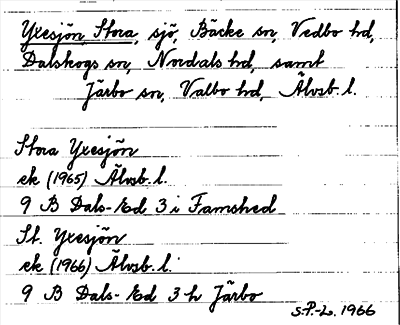 Yxesjön, Stora, sjö, Bäcke sn, Vedbo hd,
Dalskogs sn, Nordals hd, samt
Järbo sn, Valbo hd, Älvsb. l.
Stora Yxesjön
ek (1965) Älvsb. l.
9 B Dals-Ed 3 i Famshed
St. Yxesjön
ek (1966) Älvsb. l.
9 B Dals-Ed 3 h Järbo
S.P.-L. 1966